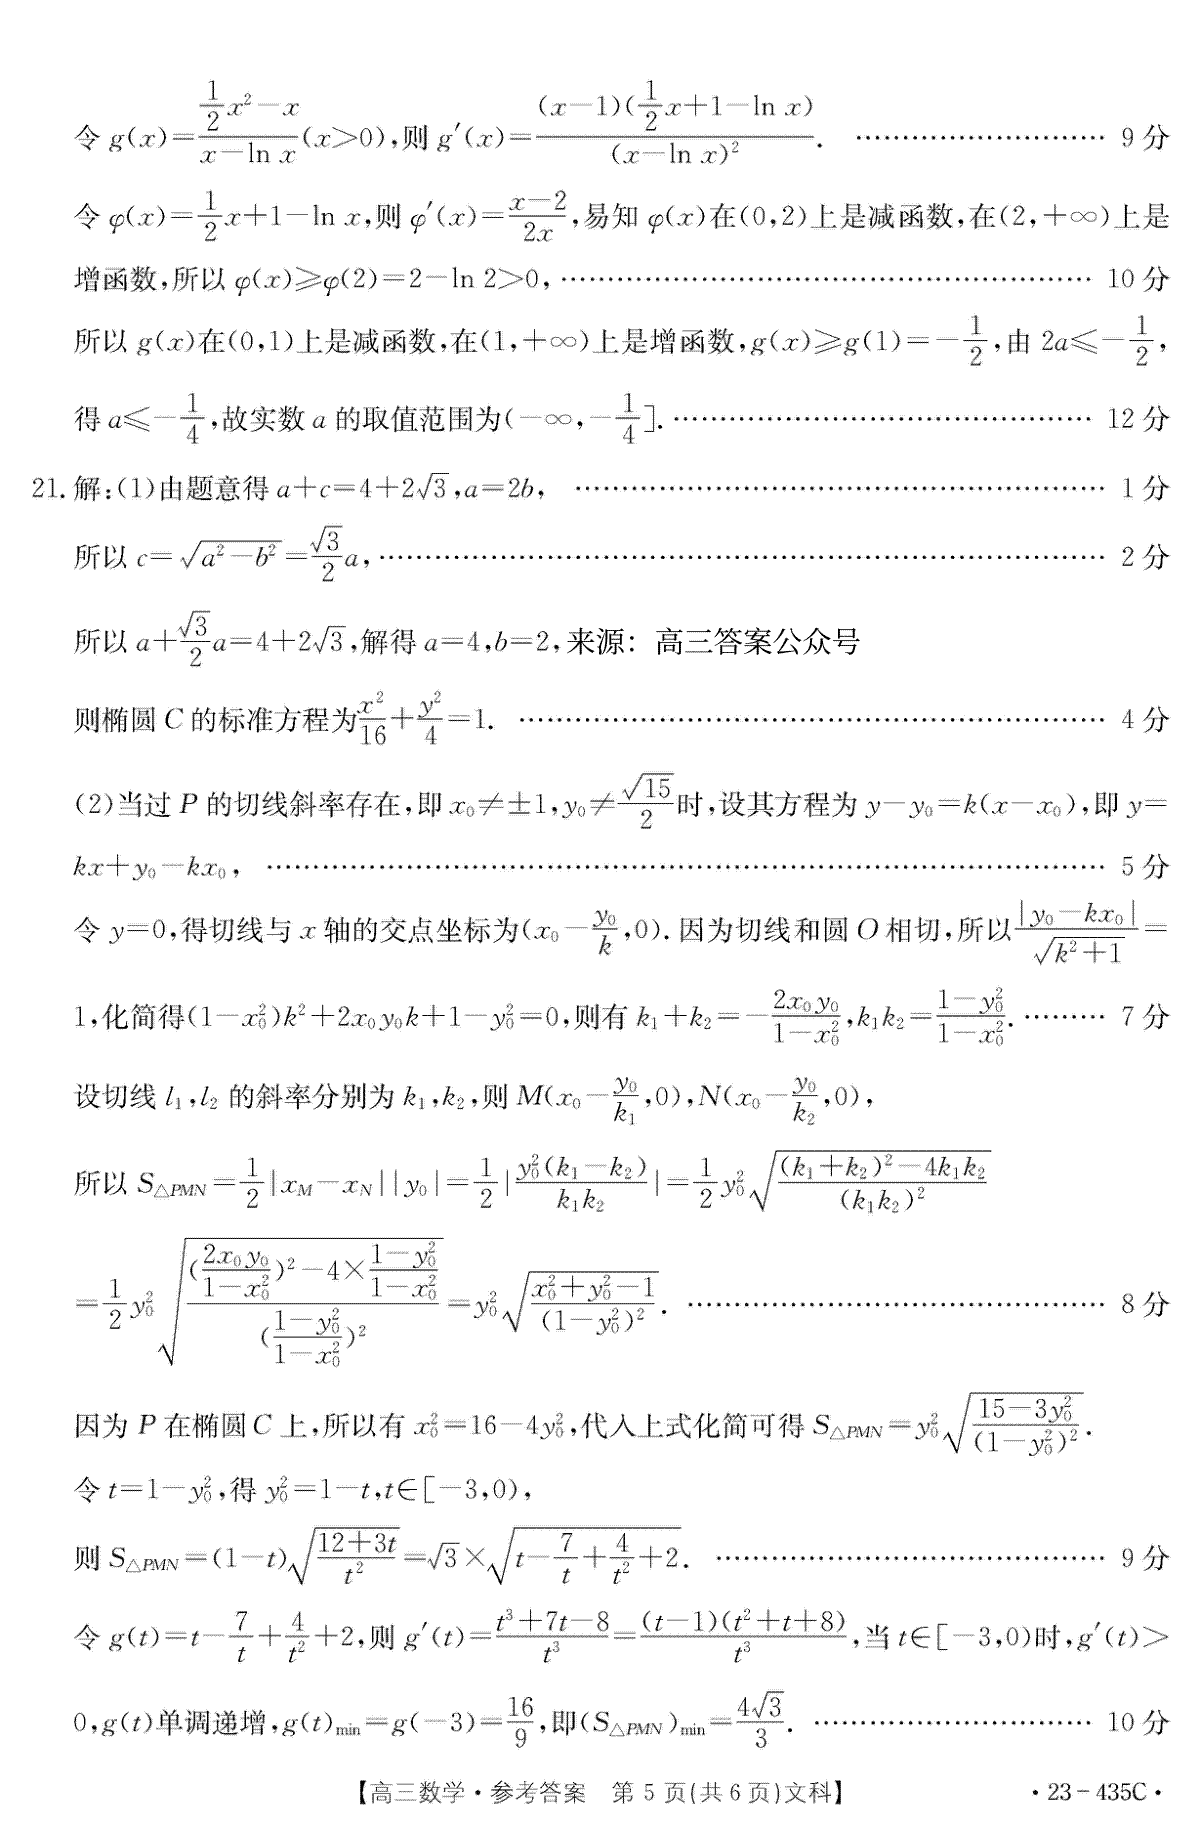 令 g(x)=\frac{\frac{1}{2}x^2-x}{x-\ln x}(x>0),则 g'(x)=\frac{(x-1)(\frac{1}{2}x+1-\ln x)}{(x-\ln x)^2}. ………………………… 9 分
令 φ(x)=\frac{1}{2}x+1-ln x,则 φ'(x)=\frac{x-2}{2x},易知 φ(x)在(0,2)上是减函数,在(2,+∞)上是
增函数,所以 φ(x)≥φ(2)=2-ln 2>0, ………………………… 10 分
所以 g(x)在(0,1)上是减函数,在(1,+∞)上是增函数,g(x)≥g(1)=-\frac{1}{2},由 2a≤-\frac{1}{2},
得 a≤-\frac{1}{4},故实数 a 的取值范围为(-∞,-\frac{1}{4}]. ………………………… 12 分
21.解:(1)由题意得 a+c=4+2\sqrt{3},a=2b, ………………………… 1 分
所以 c=\sqrt{a^2-b^2}=\frac{\sqrt{3}}{2}a, ………………………… 2 分
所以 a+\frac{\sqrt{3}}{2}a=4+2\sqrt{3},解得 a=4,b=2, 来源：高三答案公众号
则椭圆 C 的标准方程为\frac{x^2}{16}+\frac{y^2}{4}=1. ………………………… 4 分
(2)当过 P 的切线斜率存在,即 x_0≠±1,y_0≠\frac{\sqrt{15}}{2}时,设其方程为 y-y_0=k(x-x_0),即 y=
kx+y_0-kx_0, ………………………… 5 分
令 y=0,得切线与 x 轴的交点坐标为(x_0-\frac{y_0}{k},0).因为切线和圆 O 相切,所以\frac{|y_0-kx_0|}{\sqrt{k^2+1}}=
1,化简得(1-x_0^2)k^2+2x_0y_0k+1-y_0^2=0,则有 k_1+k_2=-\frac{2x_0y_0}{1-x_0^2},k_1k_2=\frac{1-y_0^2}{1-x_0^2}. ……… 7 分
设切线 l_1,l_2 的斜率分别为 k_1,k_2,则 M(x_0-\frac{y_0}{k_1},0),N(x_0-\frac{y_0}{k_2},0),
所以 S_{△PMN}=\frac{1}{2}|x_M-x_N||y_0|=\frac{1}{2}|\frac{y_0^2(k_1-k_2)}{k_1k_2}|=\frac{1}{2}y_0^2\sqrt{\frac{(k_1+k_2)^2-4k_1k_2}{(k_1k_2)^2}}
=\frac{1}{2}y_0^2\sqrt{\frac{(\frac{2x_0y_0}{1-x_0^2})^2-4×\frac{1-y_0^2}{1-x_0^2}}{(\frac{1-y_0^2}{1-x_0^2})^2}}=y_0^2\sqrt{\frac{x_0^2+y_0^2-1}{(1-y_0^2)^2}}. ………………………… 8 分
因为 P 在椭圆 C 上,所以有 x_0^2=16-4y_0^2,代入上式化简可得 S_{△PMN}=y_0^2\sqrt{\frac{15-3y_0^2}{(1-y_0^2)^2}}.
令 t=1-y_0^2,得 y_0^2=1-t,t∈[-3,0),
则 S_{△PMN}=(1-t)\sqrt{\frac{12+3t}{t^2}}=\sqrt{3}×\sqrt{t-\frac{7}{t}+\frac{4}{t^2}+2}. ………………………… 9 分
令 g(t)=t-\frac{7}{t}+\frac{4}{t^2}+2,则 g'(t)=\frac{t^3+7t-8}{t^3}=\frac{(t-1)(t^2+t+8)}{t^3},当 t∈[-3,0)时,g'(t)>
0,g(t)单调递增,g(t)_{min}=g(-3)=\frac{16}{9},即(S_{△PMN})_{min}=\frac{4\sqrt{3}}{3}. ………………………… 10 分
【高三数学·参考答案 第 5 页(共 6 页)文科】 ·23-435C·